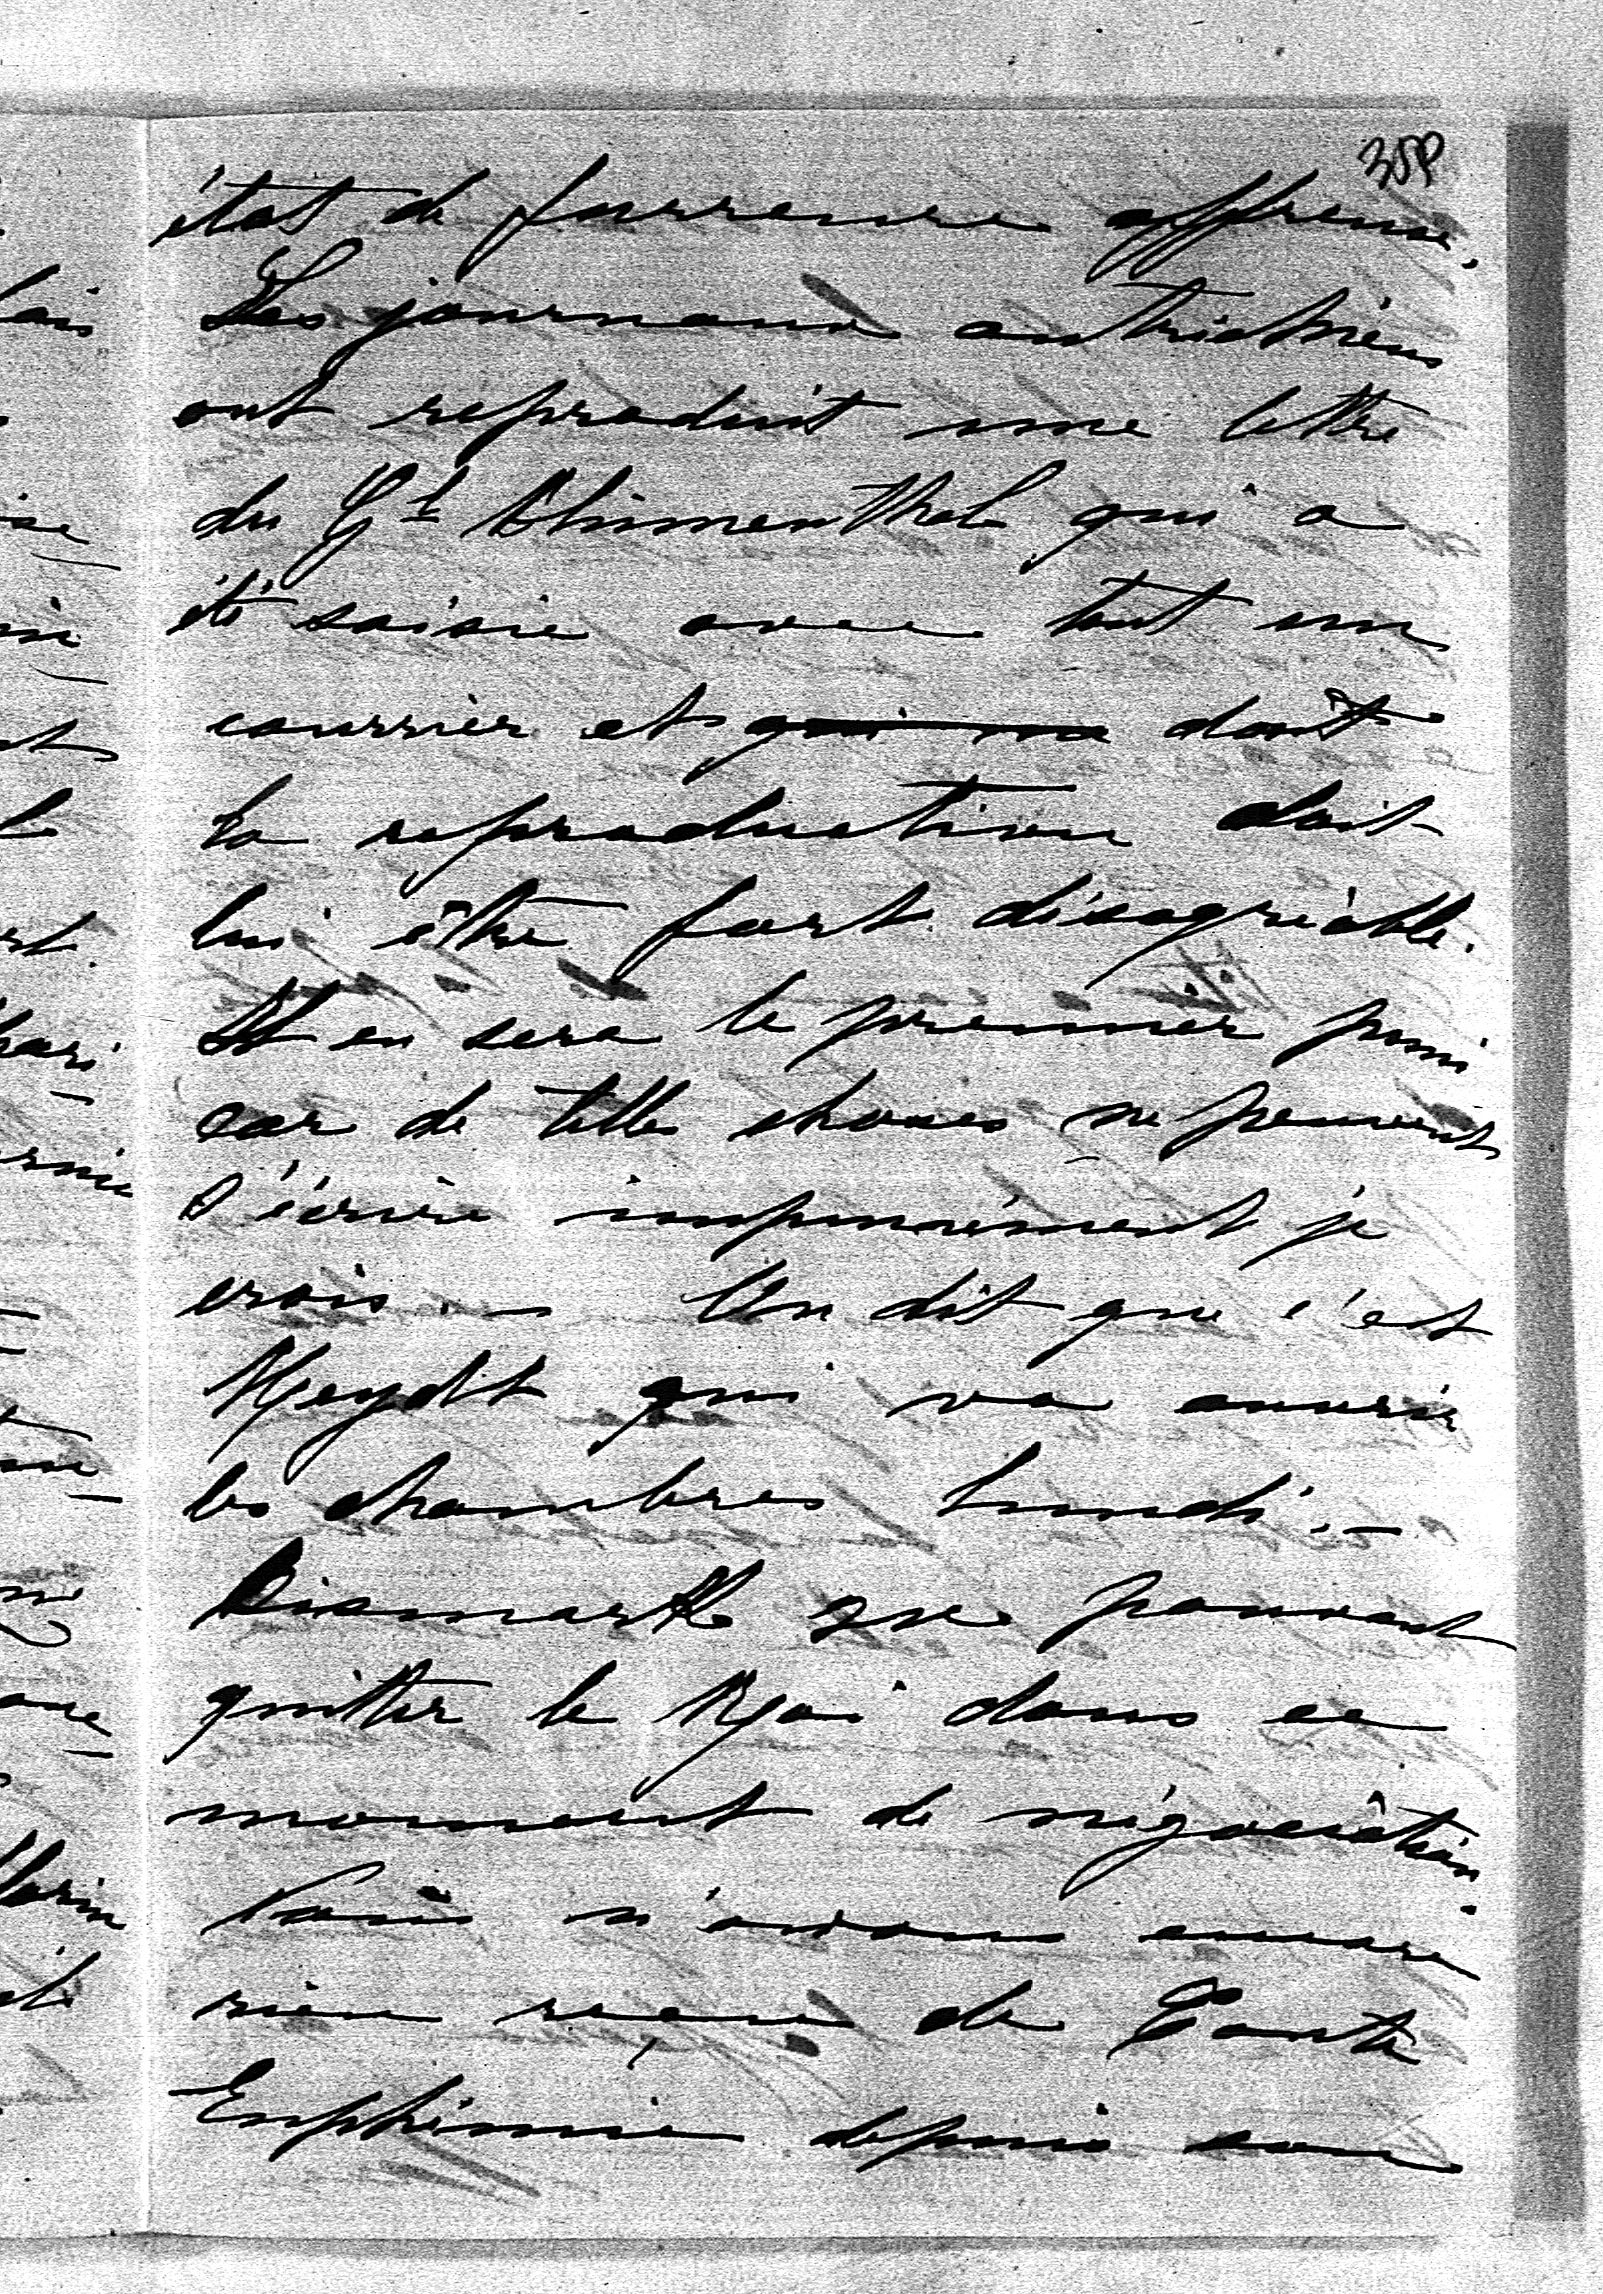 359
état de fureur affreuse.
Les journaux autrichiens
ont reproduit une lettre
du Gl Blumenthal qui a
été saisie avec tout un
courrier et qui dont
la reproduction doit
lui être fort désagréable.
Il en sera le premier puni
car de telles choses ne peuvent
s'écrire impunément je
crois. – On dit que c'est
Heydt qui va ouvrir
les chambres lundi. –
Bismarck ne pouvant
quitter le Roi dans ce
moment de négociation.
Nous n'avons encore
rien reçu de Tante
Euphémie depuis son